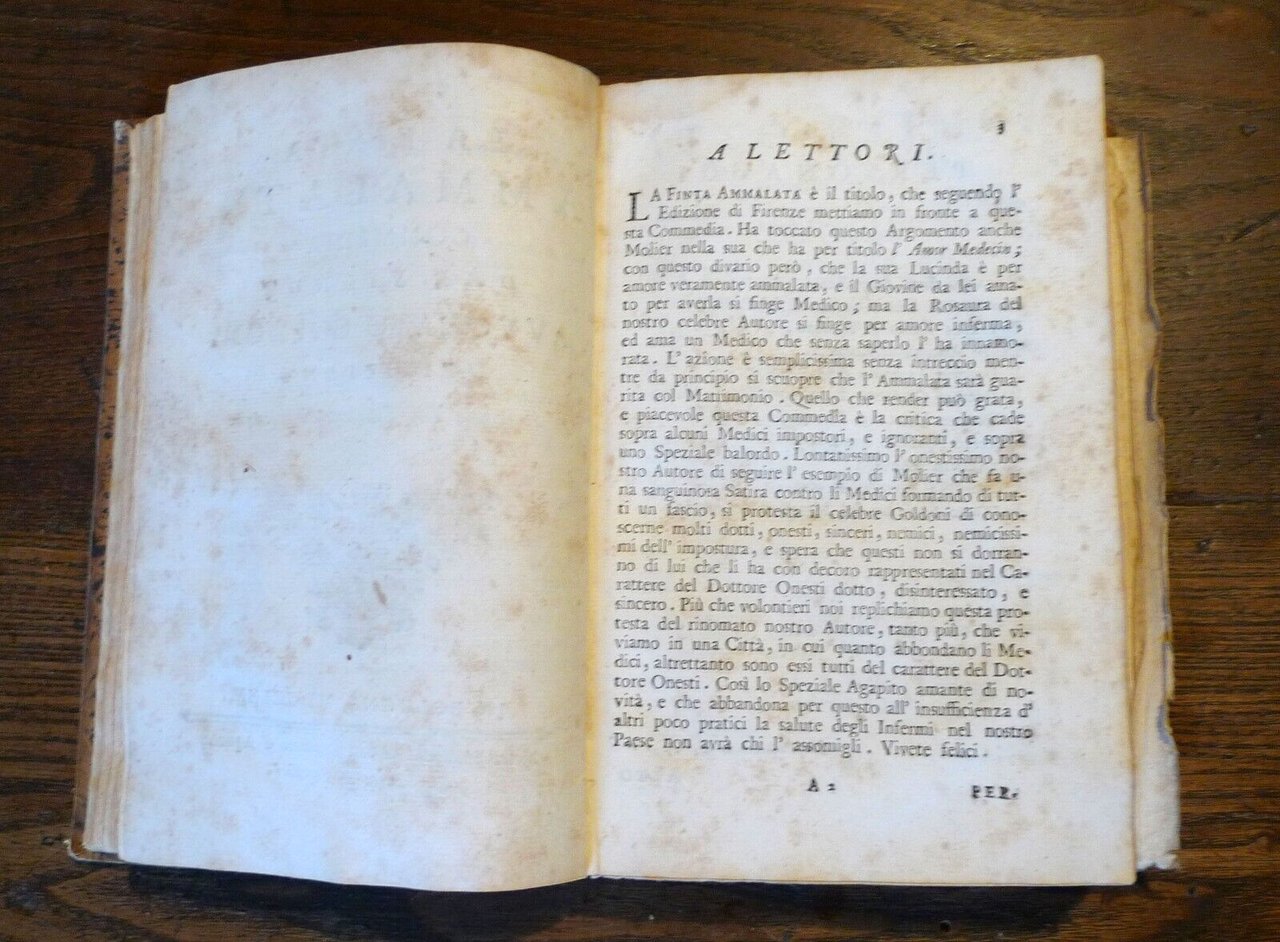 3
A LETTORI.
LA FINTA AMMALATA è il titolo, che seguendo l'
Edizione di Firenze mettiamo in fronte a que-
sta Commedia. Ha toccato questo Argomento anche
Molier nella sua che ha per titolo l' Amor Medecin;
con questo divario però, che la sua Lucinda è per
amore veramente ammalata, e il Giovine da lei ama-
to per averla si finge Medico; ma la Rosaura del
nostro celebre Autore si finge per amore inferma,
ed ama un Medico che senza saperlo l' ha innamo-
rata. L' azione è semplicissima senza intreccio men-
tre da principio si scuopre che l' Ammalata sarà gua-
rita col Matrimonio. Quello che render può grata,
e piacevole questa Commedia è la critica che cade
sopra alcuni Medici impostori, e ignoranti, e sopra
uno Speziale balordo. Lontanissimo l' onestissimo no-
stro Autore di seguire l' esempio di Molier che fa u-
na sanguinosa Satira contro li Medici formando di tut-
ti un fascio, si protesta il celebre Goldoni di cono-
scerne molti dotti, onesti, sinceri, nemici, nemicissi-
mi dell' impostura, e spera che questi non si dorran-
no di lui che li ha con decoro rappresentati nel Ca-
rattere del Dottore Onesti dotto, disinteressato, e
sincero. Più che volontieri noi replichiamo questa pro-
testa del rinomato nostro Autore, tanto più, che vi-
viamo in una Città, in cui quanto abbondano li Me-
dici, altrettanto sono essi tutti del carattere del Dot-
tore Onesti. Così lo Speziale Agapito amante di no-
vità, e che abbandona per questo all' insufficienza d'
altri poco pratici la salute degli Infermi nel nostro
Paese non avrà chi l' assomigli. Vivete felici.
A 2
PER-